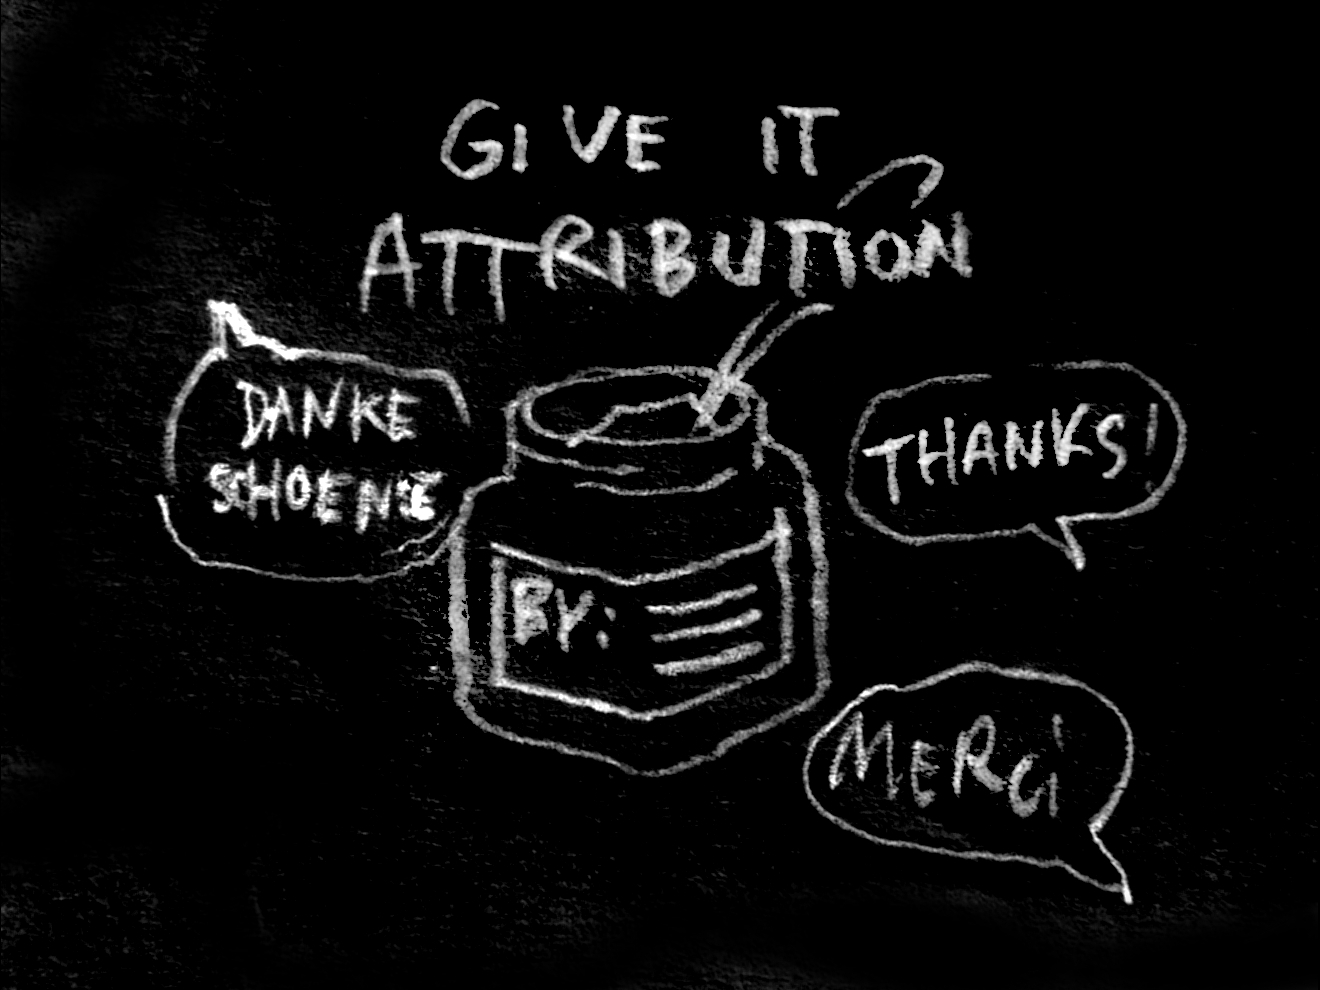 GIVE IT
ATTRIBUTION
DANKE
SCHOENE
THANKS!
BY:
MERCI